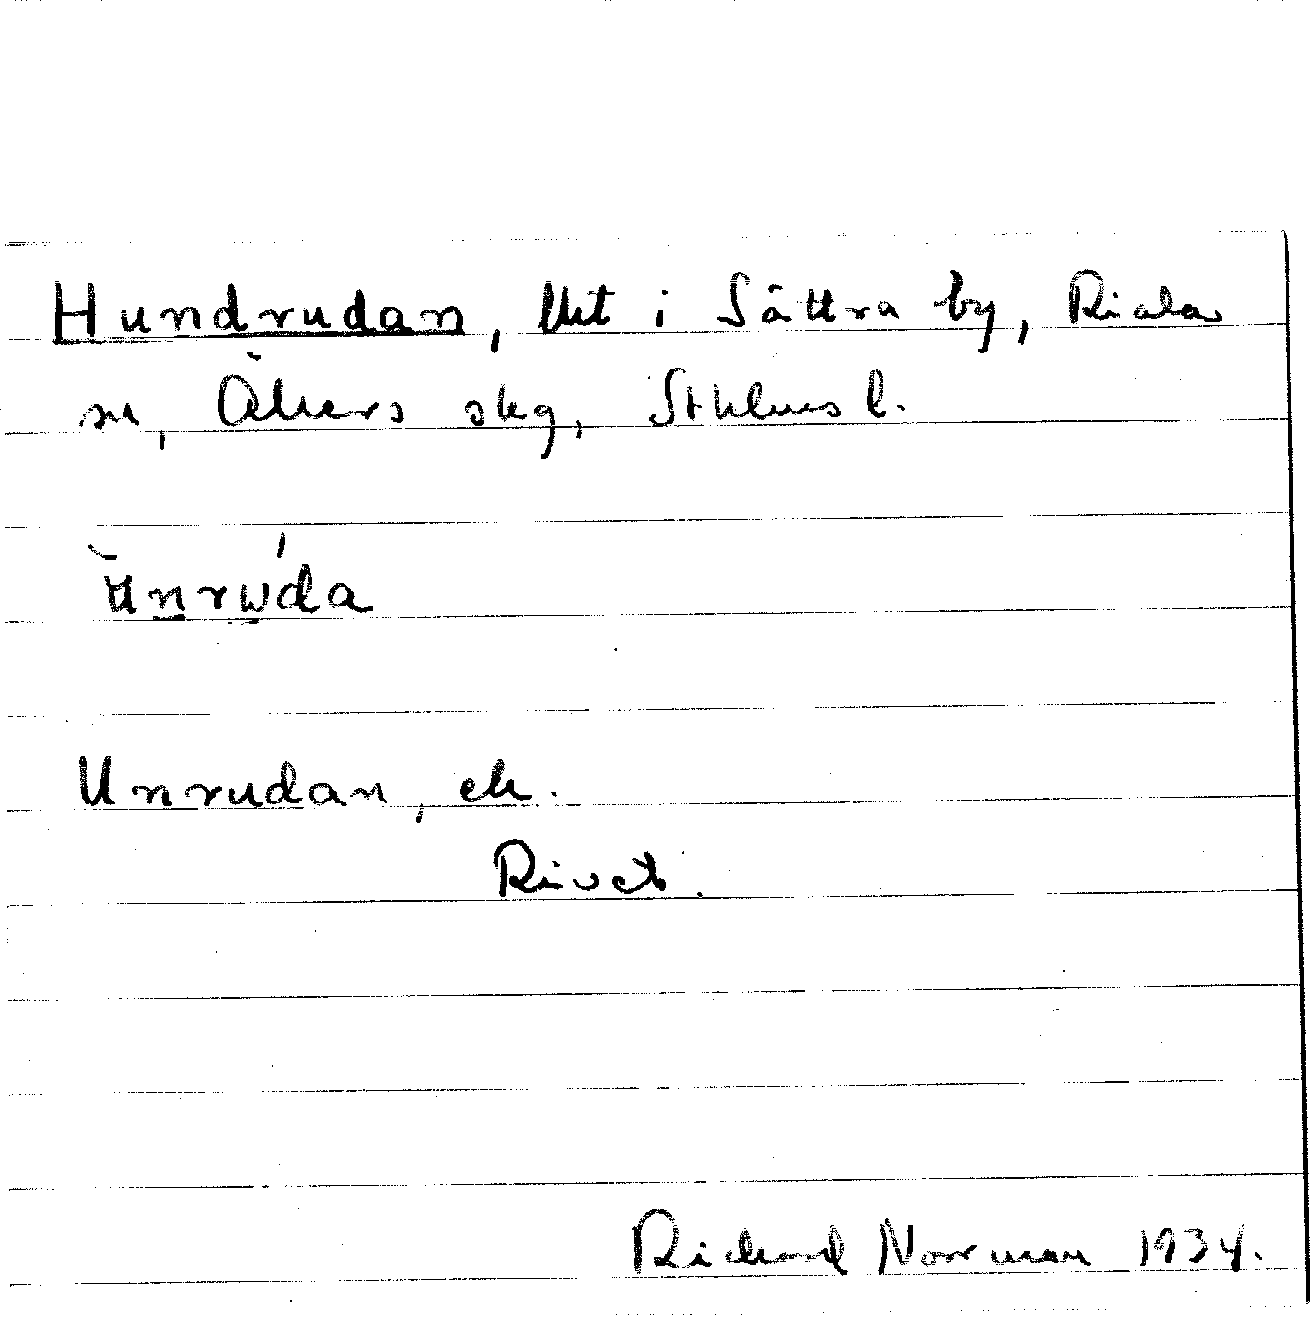 Hundrudan, litet i Sättra by, Riala
sn, Åkers skg, Sthlms l.
unruda
Unrudan, ek.
Rivet.
Richard Norrman 1934.